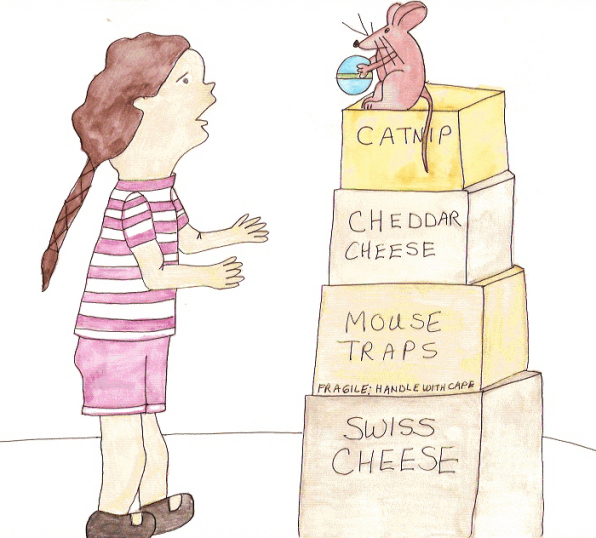 CATNIP
CHEDDAR
CHEESE
MOUSE
TRAPS
FRAGILE: HANDLE WITH CARE
SWISS
CHEESE